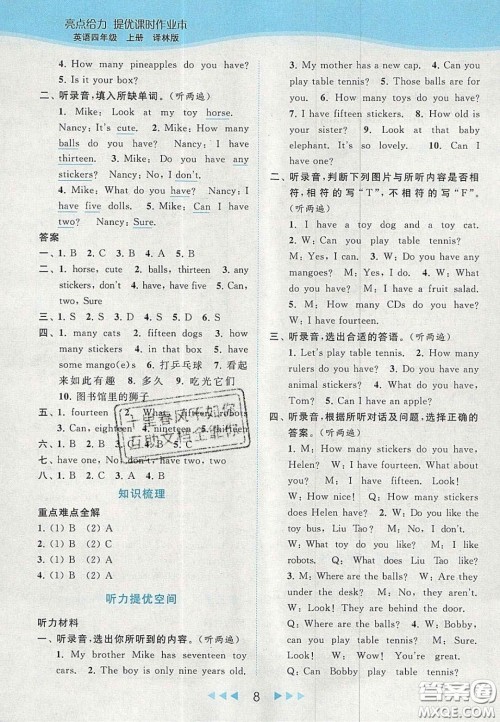 亮点给力 提优课时作业本
英语四年级 上册 译林版
4. How many pineapples do you have?
5. Is it your box?
二、听录音,填入所缺单词。(听两遍)
1. Mike: Look at my toy horse.
Nancy: It's cute. 2. Mike: How many
balls do you have? Nancy: I have
thirteen. 3. Mike: Do you have any
stickers? Nancy: No, I don't.
4. Mike: What do you have? Nancy: I
have five dolls. 5. Mike: Can I have
two? Nancy: Sure.
答案
一、1. B 2. C 3. A 4. A 5. B
二、1. horse, cute 2. balls, thirteen 3. any
stickers, don't 4. have, have five 5. Can,
two, Sure
三、1. S 2. D 3. S 4. S 5. D
四、1. many cats 2. fifteen dogs 3. how
many stickers 4. in that box 5. have
some mango(e)s 6. 打乒乓球 7. 看起
来如此有趣 8. 多久 9. 吃光它们
10. 图书馆里的狮子
五、1. fourteen 2. 
3. Can, eighteen 4. nineteen, fifteen
六、1. B 2. C 3. A 4. B 5. B
七、have one, No don't, two, have, Can have
知识梳理
重点难点全解
1. (1) B (2) A
2. (1) B (2) A
3. (1) B (2) A
4. (1) B (2) A
听力提优空间
听力材料
一、听录音,选出你所听到的内容。(听两遍)
1. My brother Mike has seventeen toy
cars. 2. My nine-year-old cousin has
no ruler. 3. The boy is eleven years old.
4. Can you play table tennis? 5. They
are so beautiful. 6. Can I have two
toy monkeys? 7. What do you have?
I have fifteen stickers. 8. How old is
your sister? 9. Look at that baby
elephant. It's so lovely. 10. Can I
have one?
二、听录音,判断下列图片与所听内容是否相
符,相符的写“T”,不相符的写“F”。
(听两遍)
1. I have a toy dog and a toy cat.
2. W: Can you play table tennis?
M: Yes, I do. 3. W: Do you have any
mangoes? M: Yes, I do. 4. W: What
do you have? M: I have a fruit salad.
5. M: How many CDs do you have?
W: I have fourteen.
三、听录音,选出合适的答语。(听两遍)
1. Let's play table tennis. 2. How many
stickers do you have? 3. Do you have any
animal stickers? 4. What do you have?
四、听录音,根据所听对话及问题,选择正确的
答案。(听两遍)
1. M: How many stickers do you have,
Helen? W: I have fifteen. Look!
M: Wow! Q: How many stickers
does Helen have? 2. W: Do you like
the toy bus, Liu Tao? M: No, I don't.
I like the toy cars. W: Me too.
Q: What does Liu Tao like?
3. M: Where are the balls? W: Look!
They're in the box. Q: Where are
the balls? 4. W: Can you, Bobby,
can you play table tennis? M: Yes,
I can. W: Wow! You're great.
M: Very good. Look! W: Wonderful.
Q: Can Bobby play table tennis?
8